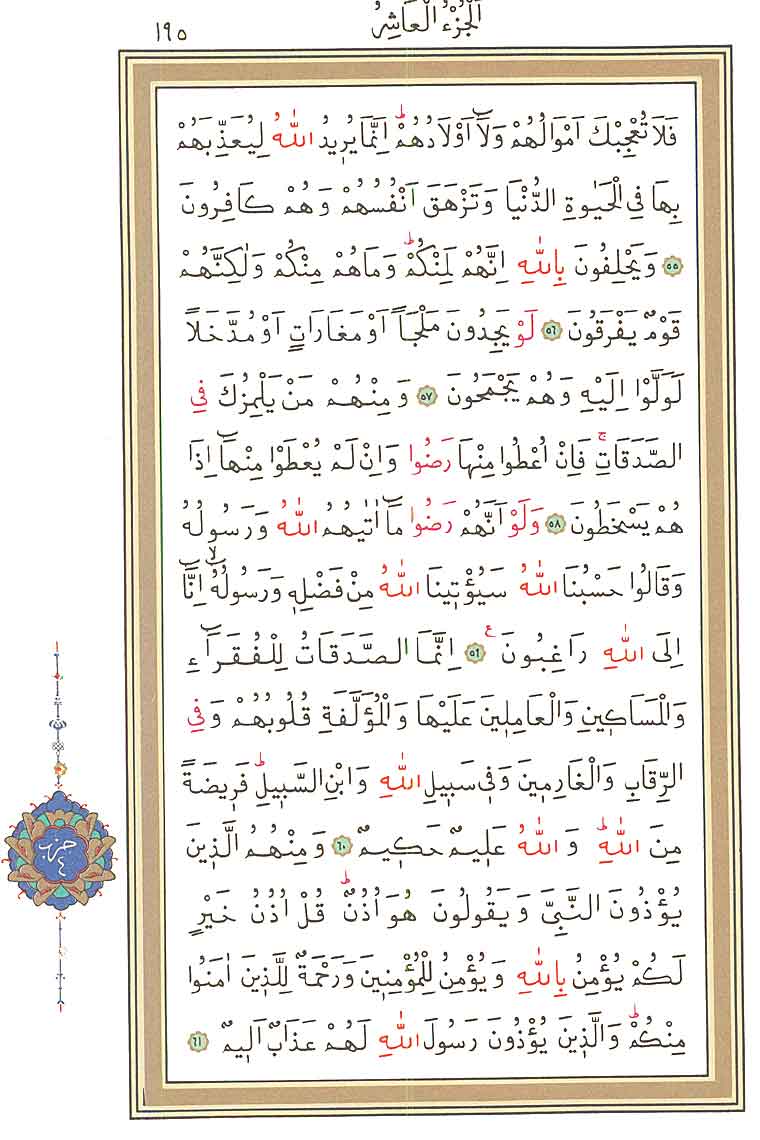 اَلْجُزْءُ الْعَاشِرُ
١٩٥
فَلَا تُعْجِبْكَ اَمْوَالُهُمْ وَلَٓا اَوْلَادُهُمْۜ اِنَّمَا يُر۪يدُ اللّٰهُ لِيُعَذِّبَهُمْ
بِهَا فِي الْحَيٰوةِ الدُّنْيَا وَتَزْهَقَ اَنْفُسُهُمْ وَهُمْ كَافِرُونَ
﴿٥٥﴾ وَيَحْلِفُونَ بِاللّٰهِ اِنَّهُمْ لَمِنْكُمْۜ وَمَا هُمْ مِنْكُمْ وَلٰكِنَّهُمْ
قَوْمٌ يَفْرَقُونَ ﴿٥٦﴾ لَوْ يَجِدُونَ مَلْجَـًٔا اَوْ مَغَارَاتٍ اَوْ مُدَّخَلًا
لَوَلَّوْا اِلَيْهِ وَهُمْ يَجْمَحُونَ ﴿٥٧﴾ وَمِنْهُمْ مَنْ يَلْمِزُكَ فِي
الصَّدَقَاتِۚ فَاِنْ اُعْطُوا مِنْهَا رَضُوا وَاِنْ لَمْ يُعْطَوْا مِنْهَٓا اِذَا
هُمْ يَسْخَطُونَ ﴿٥٨﴾ وَلَوْ اَنَّهُمْ رَضُوا مَٓا اٰتٰيهُمُ اللّٰهُ وَرَسُولُهُ
وَقَالُوا حَسْبُنَا اللّٰهُ سَيُؤْت۪ينَا اللّٰهُ مِنْ فَضْلِه۪ وَرَسُولُهُٓۙ اِنَّٓا
اِلَى اللّٰهِ رَاغِبُونَ۟ ﴿٥٩﴾ اِنَّمَا الصَّدَقَاتُ لِلْفُقَرَٓاءِ
وَالْمَسَاك۪ينِ وَالْعَامِل۪ينَ عَلَيْهَا وَالْمُؤَلَّفَةِ قُلُوبُهُمْ وَفِي
الرِّقَابِ وَالْغَارِم۪ينَ وَف۪ي سَب۪يلِ اللّٰهِ وَابْنِ السَّب۪يلِۜ فَر۪يضَةً
مِنَ اللّٰهِۜ وَاللّٰهُ عَل۪يمٌ حَك۪يمٌ ﴿٦٠﴾ وَمِنْهُمُ الَّذ۪ينَ
يُؤْذُونَ النَّبِيَّ وَيَقُولُونَ هُوَ اُذُنٌۜ قُلْ اُذُنُ خَيْرٍ
لَكُمْ يُؤْمِنُ بِاللّٰهِ وَيُؤْمِنُ لِلْمُؤْمِن۪ينَ وَرَحْمَةٌ لِلَّذ۪ينَ اٰمَنُوا
مِنْكُمْۜ وَالَّذ۪ينَ يُؤْذُونَ رَسُولَ اللّٰهِ لَهُمْ عَذَابٌ اَل۪يمٌ ﴿٦١﴾
حزب
٤